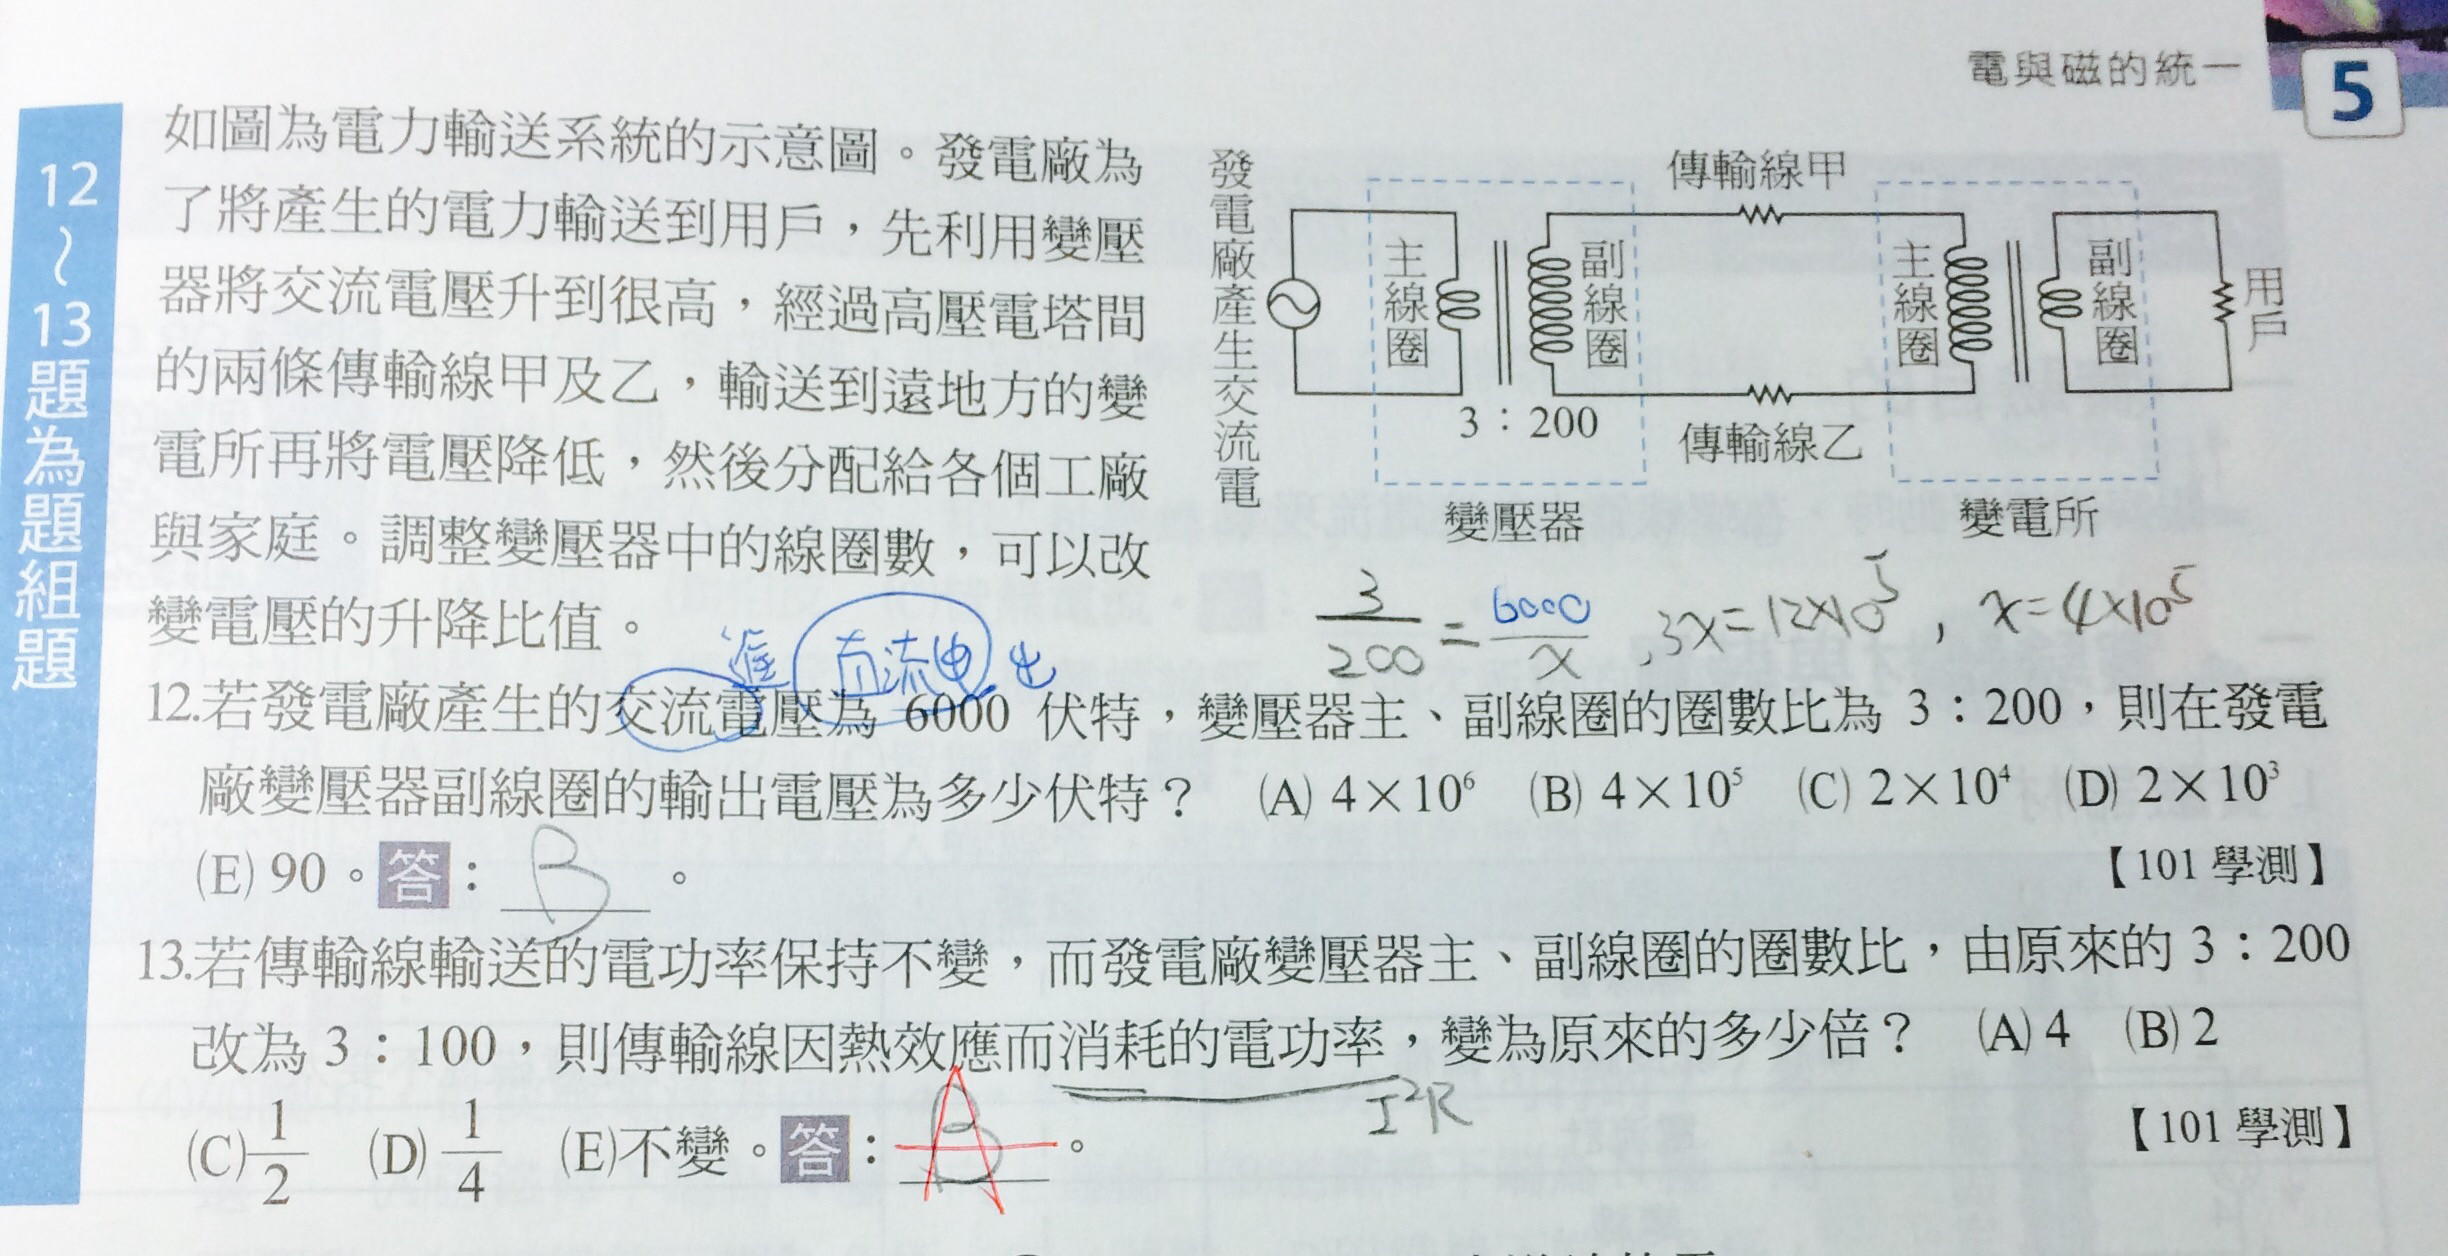 電與磁的統一
5
12~13題為題組題
如圖為電力輸送系統的示意圖。發電廠為
了將產生的電力輸送到用戶，先利用變壓
器將交流電壓升到很高，經過高壓電塔間
的兩條傳輸線甲及乙，輸送到遠地方的變
電所再將電壓降低，然後分配給各個工廠
與家庭。調整變壓器中的線圈數，可以改
變電壓的升降比值。
發電廠產生交流電
傳輸線甲
主線圈
副線圈
主線圈
副線圈
用戶
3：200
傳輸線乙
變壓器
變電所
3/200 = 6000/x , 3x=12×10⁵ , x=4×10⁵
進 直流電 出
12.若發電廠產生的交流電壓為 6000 伏特，變壓器主、副線圈的圈數比為 3：200，則在發電
廠變壓器副線圈的輸出電壓為多少伏特？ (A) 4×10⁶ (B) 4×10⁵ (C) 2×10⁴ (D) 2×10³
(E) 90。答：B。
【101 學測】
13.若傳輸線輸送的電功率保持不變，而發電廠變壓器主、副線圈的圈數比，由原來的 3：200
改為 3：100，則傳輸線因熱效應而消耗的電功率，變為原來的多少倍？ (A) 4 (B) 2
I²R
(C) 1/2 (D) 1/4 (E)不變。答：B A。
【101 學測】